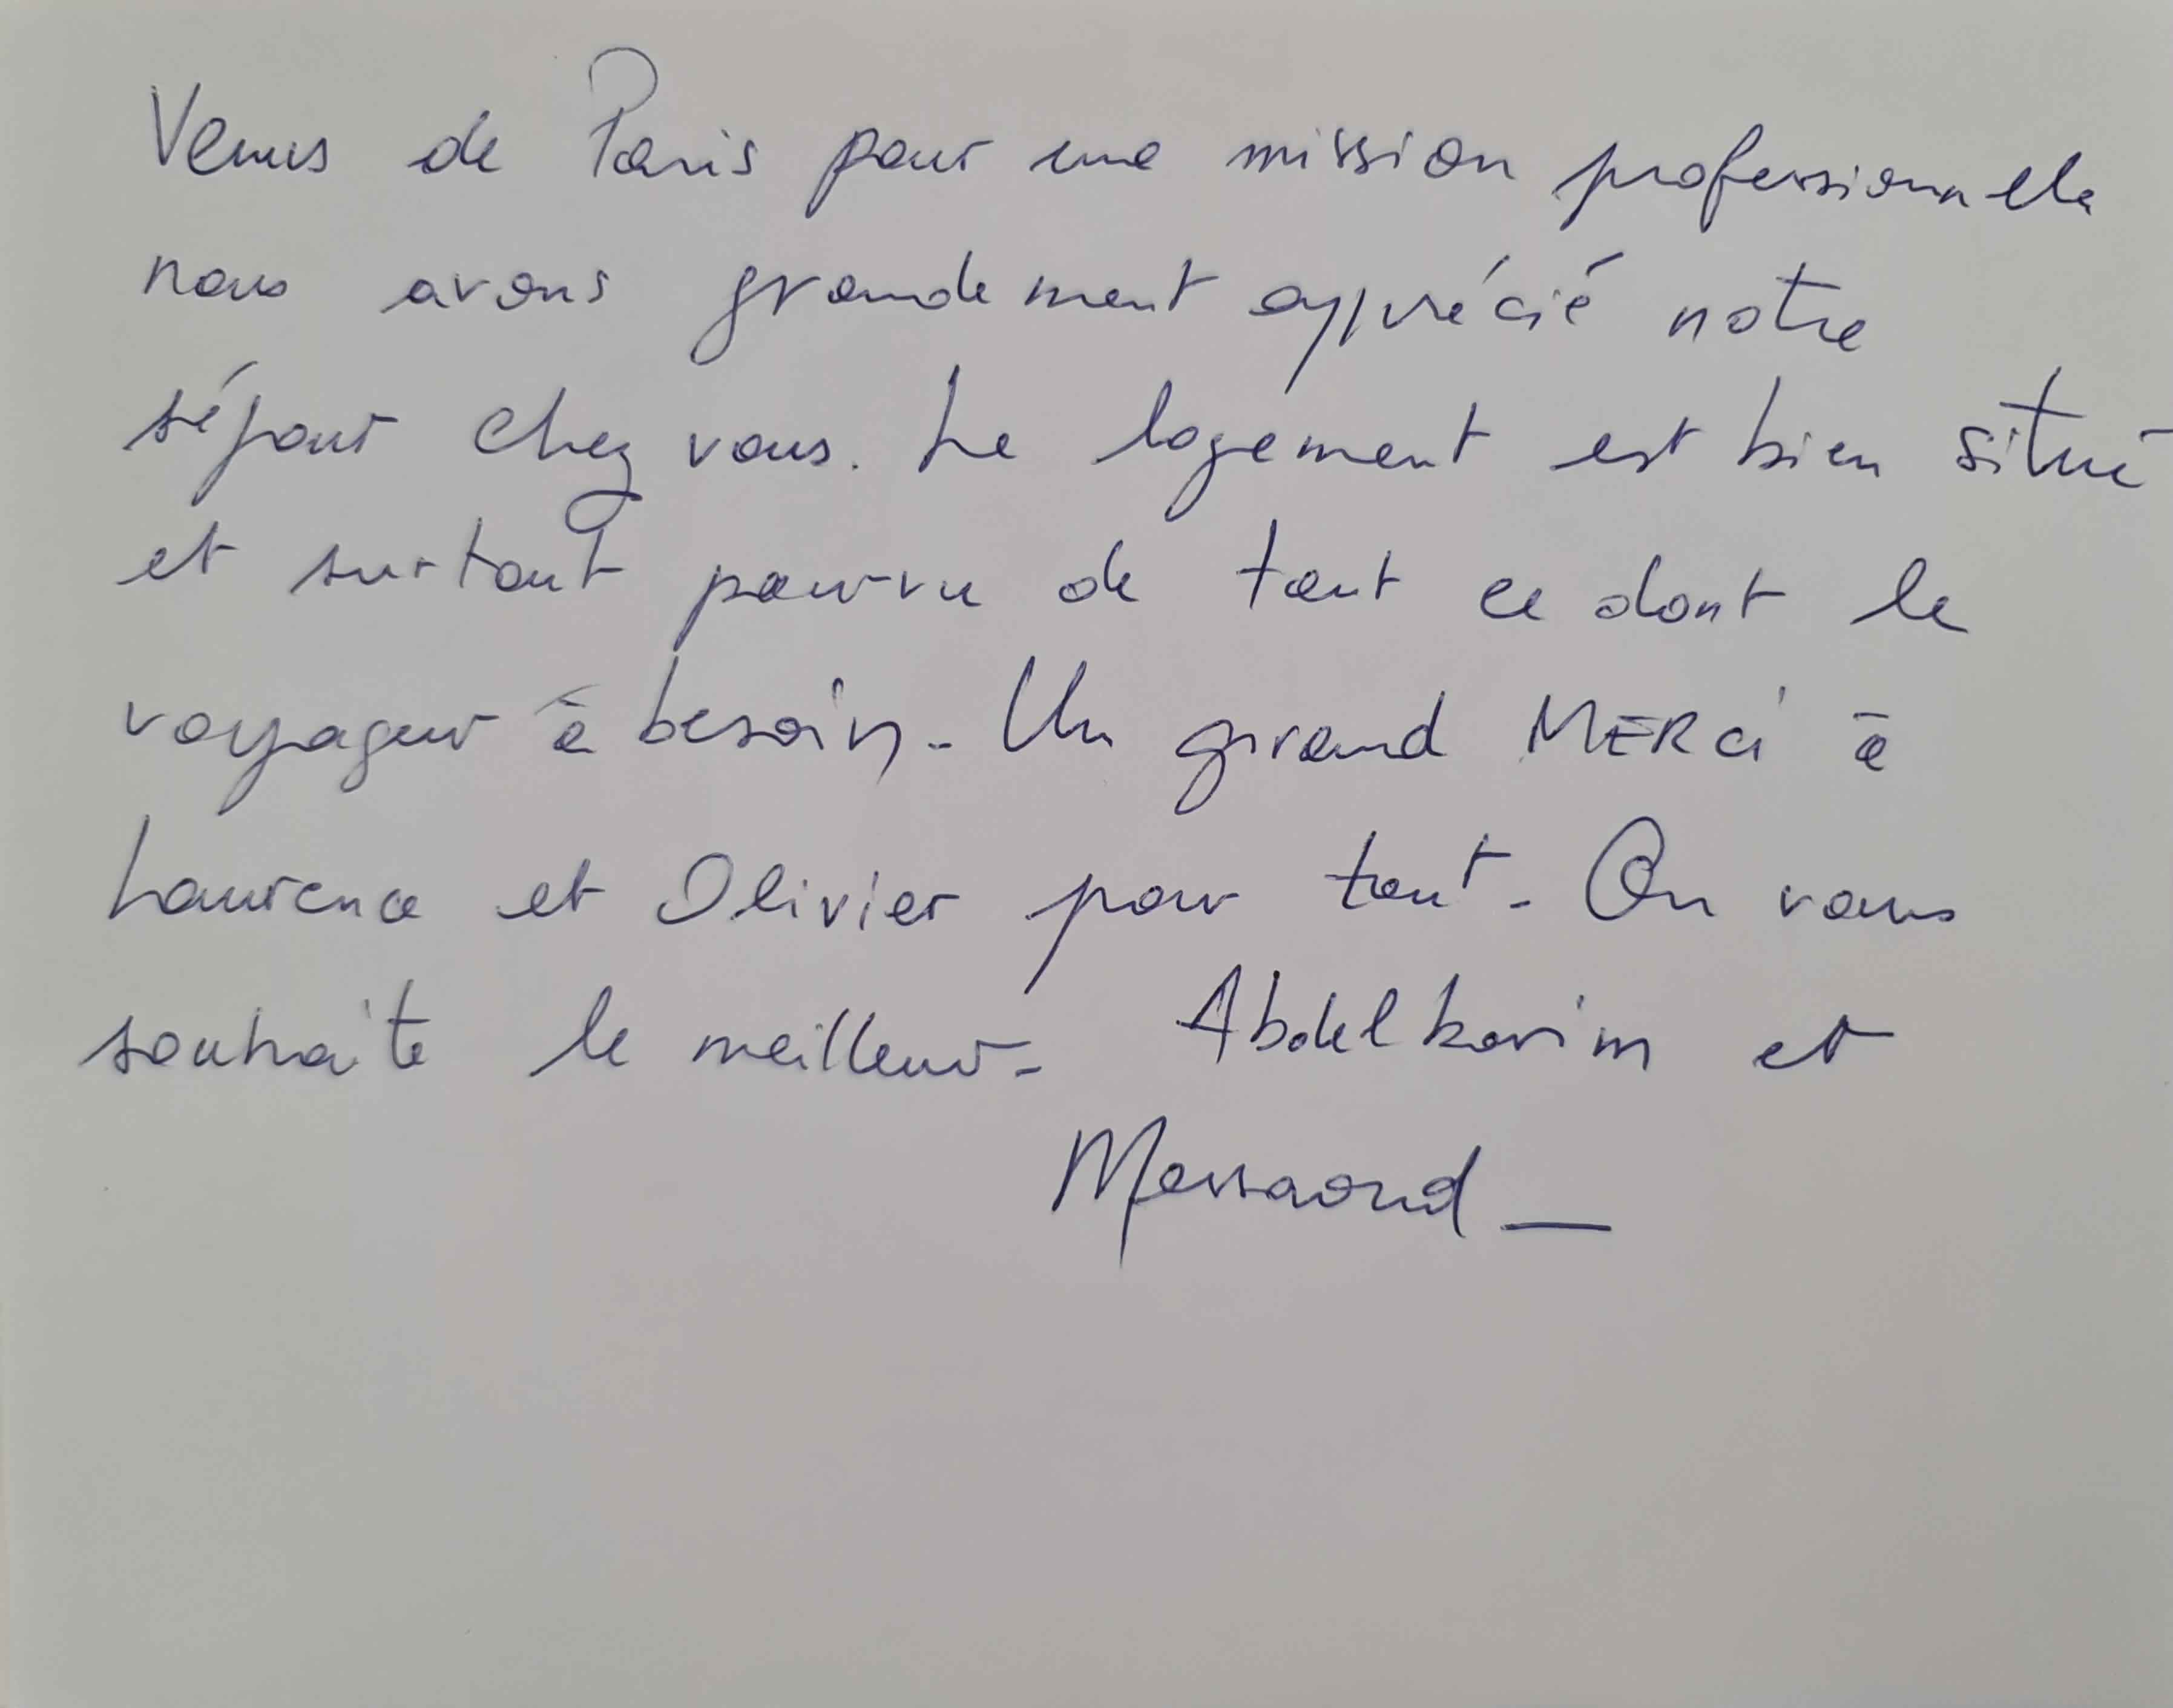 Venus de Paris pour une mission professionnelle
nous avons grandement apprécié notre
séjour chez vous. Le logement est bien situé
et surtout pourvu de tout ce dont le
voyageur à besoin. Un grand MERCi à
Laurence et Olivier pour tout. On vous
souhaite le meilleur. Abdelkarim et
Messaoud _